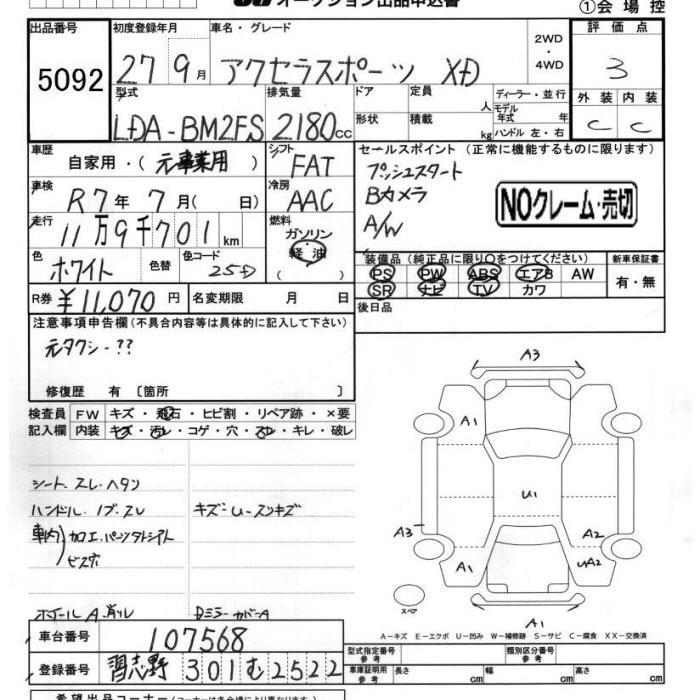 オークション出品申込書
①会場控
出品番号 初度登録年月 車名・グレード 2WD・4WD 評価点
5092 27年 9月 アクセラスポーツ XD 3
型式 排気量 ドア 定員 人 ディーラー・並行 外装 内装
LDA-BM2FS 2180cc 形状 積載 kg モデル年式 年 ハンドル 左・右 C C
車歴 自家用・(元事業用) シフト FAT セールスポイント (正常に機能するものに限ります)
車検 R7年 7月 ( 日) 冷房 AAC プッシュスタート
Bカメラ
A/W
NOクレーム・売切
走行 11万9千701km 燃料 ガソリン・軽油
色 ホワイト 色替 色コード 25D
装備品 (純正品に限り○をつけてください) 新車保証書
PS PW ABS エアB AW 有・無
SR ナビ TV カワ
R券 ¥11,070円 名変期限 月 日 後日品
注意事項申告欄 (不具合内容等は具体的に記入して下さい)
元タクシー??
修復歴 有 [箇所 ]
検査員 FW キズ・飛石・ヒビ割・リペア跡・×要
記入欄 内装 キズ・汚レ・コゲ・穴・スレ・キレ・破レ
シート スレ ヘタリ
ハンドル ノブ スレ キズ U
車内 加工
ビス穴
ホイールA 削レ Dミラーカバー A
A3
A1
U1
A3 A2
A1 UA2
スペア
A1
A-キズ E-エクボ U-凹み W-補修跡 S-サビ C-腐食 XX-交換済
車台番号 107568
登録番号 習志野 301 む 2522
型式指定番号 参考 類別区分番号 参考
車庫証明用 参考 長さ cm 幅 cm 高さ cm
希望出品コーナー (コーナーは各会場により異なります)